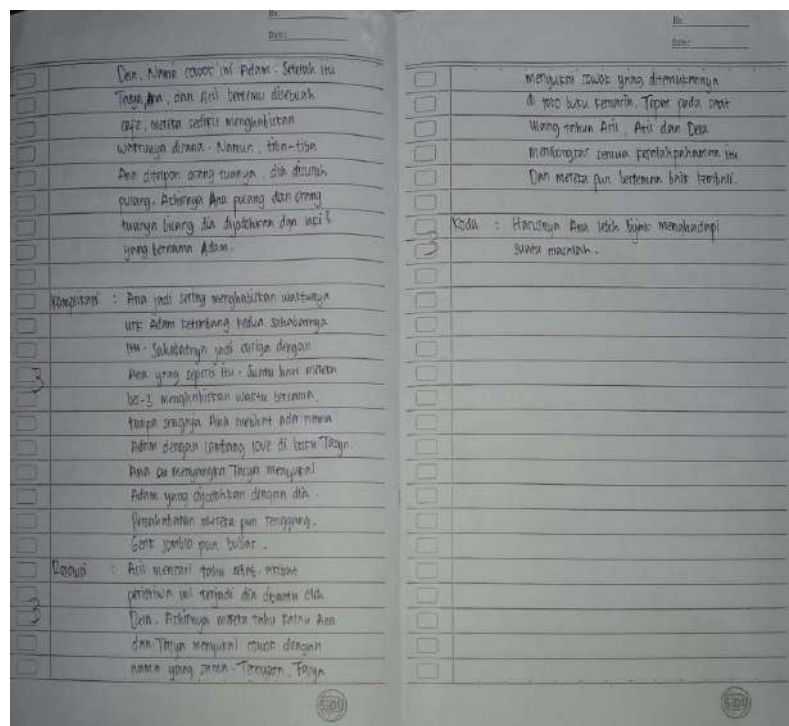 No.
Date:
Dela. Nama cowok ini Adam. Setelah itu
Tasya, Ana, dan Aril bertemu disebuah
cafe, mereka sedikit menghabiskan
waktunya disana. Namun, tiba-tiba
Ana ditelpon orang tuanya, dia disuruh
pulang. Akhirnya Ana pulang dan orang
tuanya bilang dia dijodohkan dan laki2
yang bernama Adam.
Komplikasi : Ana jadi sering menghabiskan waktunya
utk Adam ketimbang kedua sahabatnya
itu. Sahabatnya jadi curiga dengan
Ana yang seperti itu. Suatu hari mereka
ber-3 menghabiskan waktu bersama,
tanpa sengaja Ana melihat ada nama
Adam dengan lambang love di buku Tasya.
Ana pu menyangka Tasya menyukai
Adam yang dijodohkan dengan dia.
Persahabatan mereka pun renggang.
Genk jomblo pun bubar.
Resolusi : Aril mencari tahu sebab-akibat
peristiwa ini terjadi dia dibantu oleh
Dela. Akhirnya mereka tahu kalau Ana
dan Tasya menyukai cowok dengan
nama yang sama. Ternyata, Tasya
SIDU
No.
Date:
menyukai cowok yang ditemukannya
di toko buku kemarin. Tepat pada saat
ulang tahun Aril, Aril dan Dela
membongkar semua kesalahpahaman itu
Dan mereka pun berteman baik kembali.
Koda : Harusnya Ana lebih bijak menghadapi
suatu masalah.
SIDU